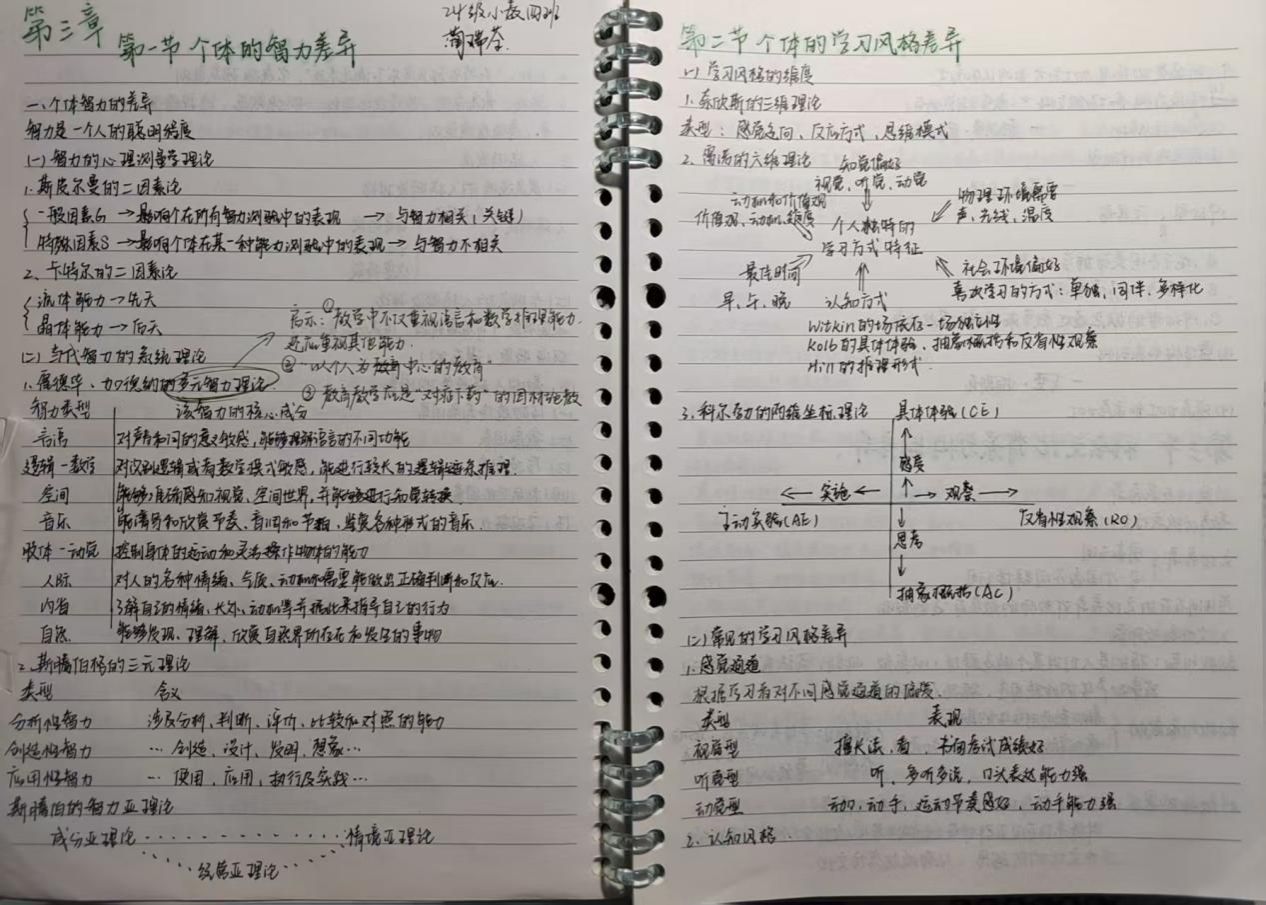 第三章
第一节 个体的智力差异
24级小教四班
蔺瑞荃
一、个体智力的差异
智力是一个人的聪明程度
(一) 智力的心理测量学理论
1. 斯皮尔曼的二因素论
一般因素G → 影响个体在所有智力测验中的表现 → 与智力相关（关键）
特殊因素S → 影响个体在某一种能力测验中的表现 → 与智力不相关
2、卡特尔的二因素论
流体能力 → 先天
晶体能力 → 后天
启示：① 教学中不仅重视语言和数学推理能力
还应重视其他能力.
② "以个人为教育中心的教育"
③ 教育教学应是"对症下药"的因材施教
(二) 当代智力的系统理论
1. 霍德华·加德纳的多元智力理论
智力类型 该智力的核心成分
言语 对声音和词的意义敏感，能够理解语言的不同功能
逻辑-数学 对识别逻辑或者数学模式敏感，能进行较长的逻辑链条推理.
空间 能够准确感知视觉、空间世界，并能够进行知觉转换
音乐 能谱写和欣赏节奏、音调和节拍，鉴赏各种形式的音乐
肢体-动觉 控制身体的运动和灵活操作物体的能力
人际 对人的各种情绪、气质、动机和需要能做出正确判断和反应.
内省 了解自己的情绪、长处、动机等并据此来指导自己的行为
自然 能够发现、理解、欣赏自然界所存在和发生的事物
2、斯腾伯格的三元理论
类型 含义
分析性智力 涉及分析、判断、评价、比较和对照的能力
创造性智力 … 创造、设计、发明、想象…
应用性智力 … 使用、应用、执行及实践…
斯腾伯的智力亚理论
成分亚理论 情境亚理论
经营亚理论
第二节 个体的学习风格差异
(一) 学习风格的维度
1. 奈欣斯的三维理论
类型：感觉定向、反应方式、思维模式
2. 雷诺的六维理论
知觉偏好
视觉、听觉、动觉
动机和价值观
价值观、动机、程度
物理环境需要
声、光线、温度
个人独特的
学习方式特征
最佳时间
早、午、晚
认知方式
社会环境偏好
喜欢学习的方式：单独、同伴、多样化
Witkin的场依存-场独立性
Kolb的具体体验、抽象概括和反省性观察
Hill的推理形式.
3. 科尔劳的两维坐标理论
具体体验(CE)
感觉
实施 观察
主动实验(AE) 反省性观察(RO)
思考
抽象概括(AC)
(二) 常见的学习风格差异
1. 感觉通道
根据学习者对不同感觉通道的偏爱.
类型 表现
视觉型 擅长读、看，书面考试成绩好
听觉型 听、多听多说，口头表达能力强
动觉型 动口，动手，运动节奏感好，动手能力强
2、认知风格.